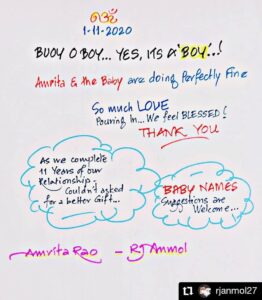 ॐ
1-11-2020
BUOY O BOY... YES, ITS A 'BOY'..!
Amrita & the Baby are doing Perfectly Fine
So much LOVE
Pouring In... We feel BLESSED!
THANK YOU
As we complete
11 Years of our
Relationship..
Couldn't asked
for a better Gift...
BABY NAMES
Suggestions are
Welcome...
Amrita Rao - RJ Anmol
rjanmol27